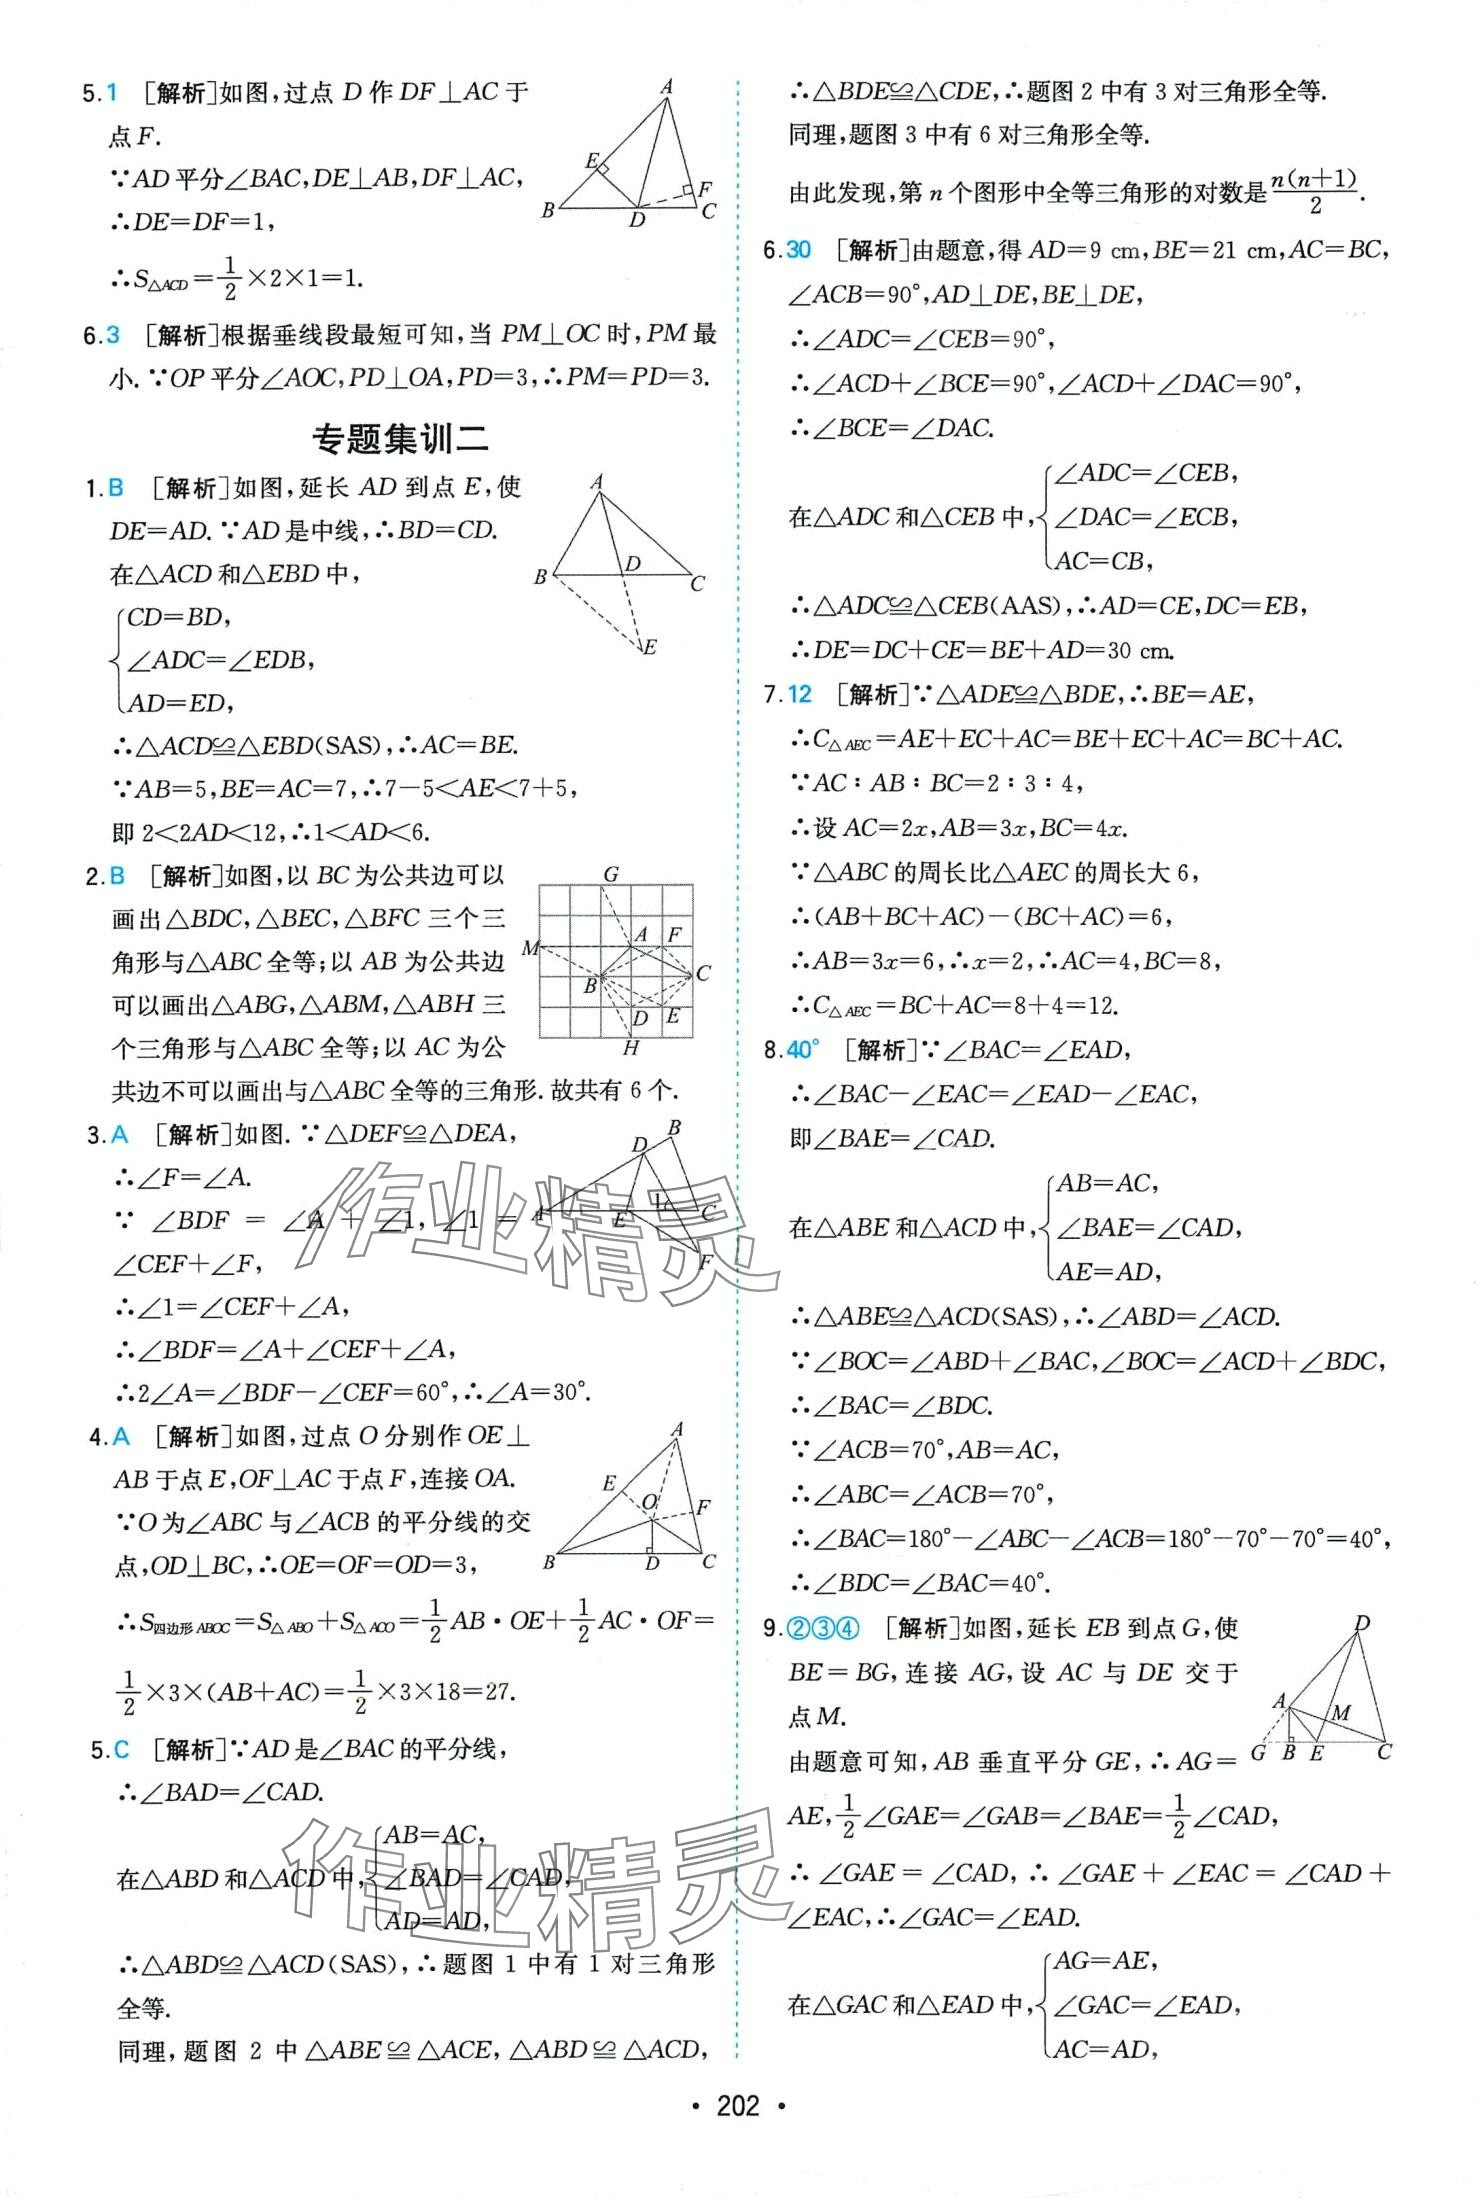 5.1 [解析]如图,过点 D 作 DF⊥AC 于
点 F.
∵AD 平分∠BAC,DE⊥AB,DF⊥AC,
∴DE=DF=1,
∴S△ACD=1/2×2×1=1.
A
E
F
B
D
C
6.3 [解析]根据垂线段最短可知,当 PM⊥OC 时,PM 最
小.∵OP 平分∠AOC,PD⊥OA,PD=3,∴PM=PD=3.
专题集训二
1.B [解析]如图,延长 AD 到点 E,使
DE=AD.∵AD 是中线,∴BD=CD.
在△ACD 和△EBD 中,
CD=BD,
∠ADC=∠EDB,
AD=ED,
A
B
D
C
E
∴△ACD≌△EBD(SAS),∴AC=BE.
∵AB=5,BE=AC=7,∴7−5<AE<7+5,
即 2<2AD<12,∴1<AD<6.
2.B [解析]如图,以 BC 为公共边可以
画出△BDC,△BEC,△BFC 三个三
角形与△ABC 全等;以 AB 为公共边
可以画出△ABG,△ABM,△ABH 三
个三角形与△ABC 全等;以 AC 为公
共边不可以画出与△ABC 全等的三角形.故共有 6 个.
G
M
A
F
B
C
D
E
H
3.A [解析]如图.∵△DEF≌△DEA,
∴∠F=∠A.
∵ ∠BDF = ∠A + ∠1, ∠1 =
∠CEF+∠F,
∴∠1=∠CEF+∠A,
∴∠BDF=∠A+∠CEF+∠A,
∴2∠A=∠BDF−∠CEF=60°,∴∠A=30°.
B
D
1
A
E
C
F
4.A [解析]如图,过点 O 分别作 OE⊥
AB 于点 E,OF⊥AC 于点 F,连接 OA.
∵O 为∠ABC 与∠ACB 的平分线的交
点,OD⊥BC,∴OE=OF=OD=3,
∴S四边形ABOC=S△ABO+S△ACO=1/2 AB·OE+1/2 AC·OF=
1/2×3×(AB+AC)=1/2×3×18=27.
A
E
O
F
B
D
C
5.C [解析]∵AD 是∠BAC 的平分线,
∴∠BAD=∠CAD.
在△ABD 和△ACD 中,
AB=AC,
∠BAD=∠CAD,
AD=AD,
∴△ABD≌△ACD(SAS),∴题图 1 中有 1 对三角形
全等.
同理,题图 2 中△ABE≌△ACE,△ABD≌△ACD,
∴△BDE≌△CDE,∴题图 2 中有 3 对三角形全等.
同理,题图 3 中有 6 对三角形全等.
由此发现,第 n 个图形中全等三角形的对数是 n(n+1)/2.
6.30 [解析]由题意,得 AD=9 cm,BE=21 cm,AC=BC,
∠ACB=90°,AD⊥DE,BE⊥DE,
∴∠ADC=∠CEB=90°,
∴∠ACD+∠BCE=90°,∠ACD+∠DAC=90°,
∴∠BCE=∠DAC.
在△ADC 和△CEB 中,
∠ADC=∠CEB,
∠DAC=∠ECB,
AC=CB,
∴△ADC≌△CEB(AAS),∴AD=CE,DC=EB,
∴DE=DC+CE=BE+AD=30 cm.
7.12 [解析]∵△ADE≌△BDE,∴BE=AE,
∴C△AEC=AE+EC+AC=BE+EC+AC=BC+AC.
∵AC∶AB∶BC=2∶3∶4,
∴设 AC=2x,AB=3x,BC=4x.
∵△ABC 的周长比△AEC 的周长大 6,
∴(AB+BC+AC)−(BC+AC)=6,
∴AB=3x=6,∴x=2,∴AC=4,BC=8,
∴C△AEC=BC+AC=8+4=12.
8.40° [解析]∵∠BAC=∠EAD,
∴∠BAC−∠EAC=∠EAD−∠EAC,
即∠BAE=∠CAD.
在△ABE 和△ACD 中,
AB=AC,
∠BAE=∠CAD,
AE=AD,
∴△ABE≌△ACD(SAS),∴∠ABD=∠ACD.
∵∠BOC=∠ABD+∠BAC,∠BOC=∠ACD+∠BDC,
∴∠BAC=∠BDC.
∵∠ACB=70°,AB=AC,
∴∠ABC=∠ACB=70°,
∴∠BAC=180°−∠ABC−∠ACB=180°−70°−70°=40°,
∴∠BDC=∠BAC=40°.
9.②③④ [解析]如图,延长 EB 到点 G,使
BE=BG,连接 AG,设 AC 与 DE 交于
点 M.
由题意可知,AB 垂直平分 GE,∴AG=
AE,1/2∠GAE=∠GAB=∠BAE=1/2∠CAD,
∴ ∠GAE = ∠CAD, ∴ ∠GAE + ∠EAC = ∠CAD +
∠EAC,∴∠GAC=∠EAD.
在△GAC 和△EAD 中,
AG=AE,
∠GAC=∠EAD,
AC=AD,
D
A
M
G
B
E
C
作业精灵
作业精灵
· 202 ·